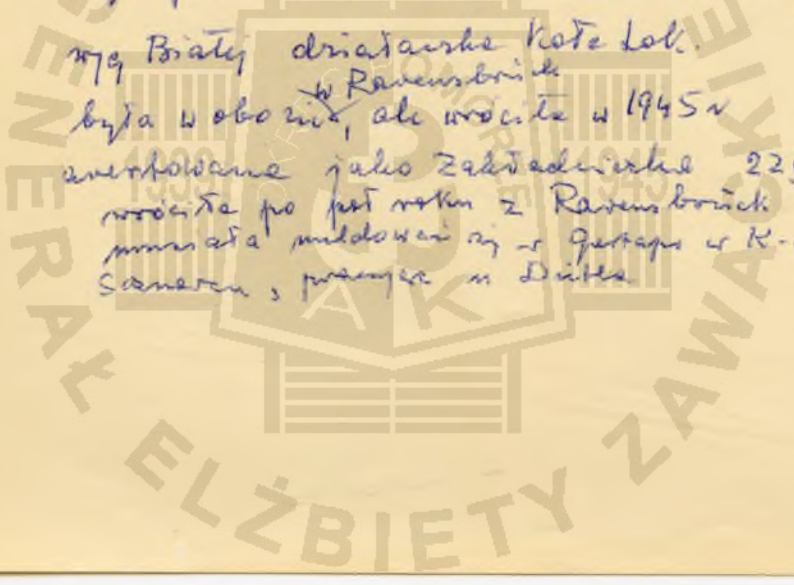 wyg Białej działaczka Koła Lok.
w Ravensbrück
była w obozie, ale wróciła w 1945 r
aresztowana jako Zakładniczka 22
wróciła po pół roku z Ravensbrück
musiała meldować się w Gestapo w K-
pracując u
1939 1945
POMORZE
AK
GENERAŁ ELŻBIETY ZAWACKIEJ